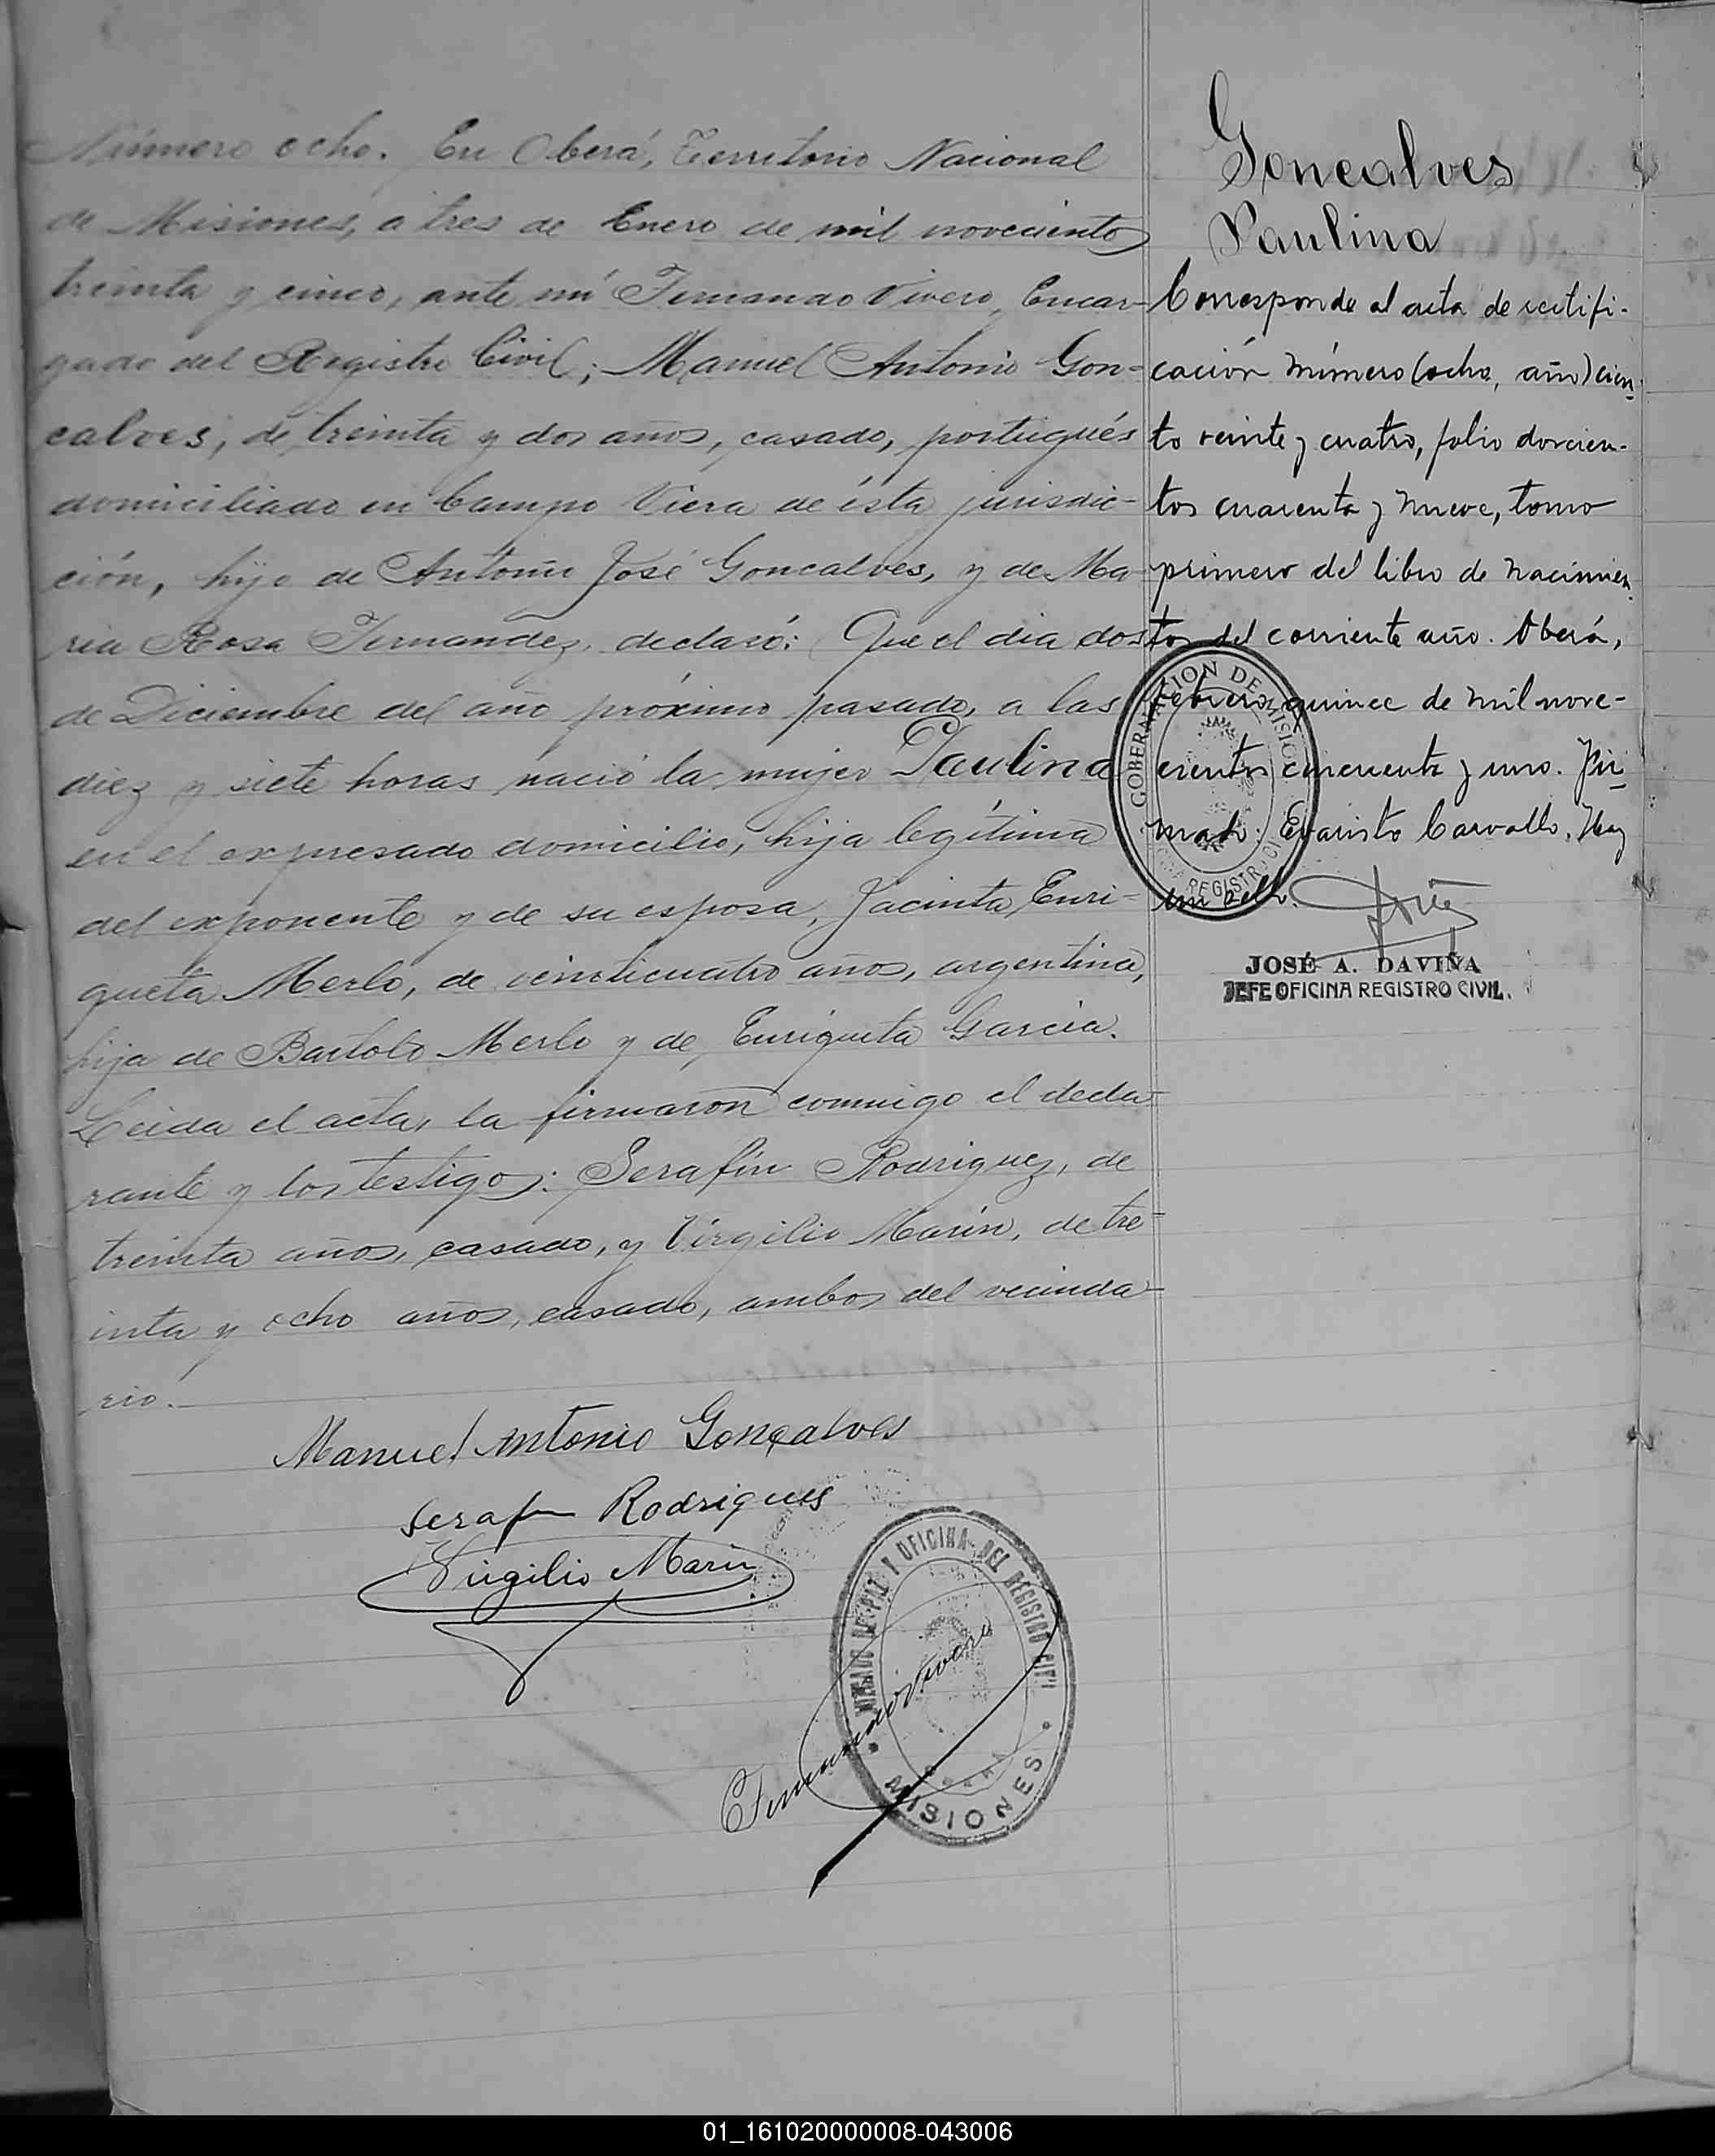 Número ocho. En Oberá, Territorio Nacional
de Misiones, a tres de Enero de mil novecientos
treinta y cinco, ante mí Fernando Vivero, Encar-
gado del Registro Civil; Manuel Antonio Gon-
calves, de treinta y dos años, casado, portugués
domiciliado en Campo Viera de ésta jurisdic-
ción, hijo de Antonio José Goncalves, y de Ma-
ria Rosa Fernandez, declaró: Que el dia dos
de Diciembre del año próximo pasado, a las
diez y siete horas nació la mujer Paulina
en el expresado domicilio, hija legítima
del exponente y de su esposa, Jacinta Enri-
queta Merlo, de veinticuatro años, argentina,
hija de Bartolo Merlo y de Enriqueta Garcia.
Leida el acta, la firmaron conmigo el decla-
rante y los testigos: Serafín Rodriguez, de
treinta años, casado, y Virgilio Marin, de tre-
inta y ocho años, casado, ambos del vecinda-
rio.
Manuel Antonio Gonçalves
Serafin Rodrigues
Virgilio Marin
Fernando Vivero
JUZGADO DE PAZ Y OFICINA DEL REGISTRO CIVIL
MISIONES
Goncalves
Paulina
Corresponde al acta de rectifi-
cación número (ocho, año) cien-
to veinte y cuatro, folio doscien-
tos cuarenta y nueve, tomo
primero del libro de nacimien-
tos del corriente año. Oberá,
febrero quince de mil nove-
cientos cincuenta y uno. Fir-
mado: Evaristo Carvallo. Hay
un sello.
GOBERNACION DE MISIONES
REGISTRO CIVIL
JOSÉ A. DAVIÑA
JEFE OFICINA REGISTRO CIVIL.
01_161020000008-043006